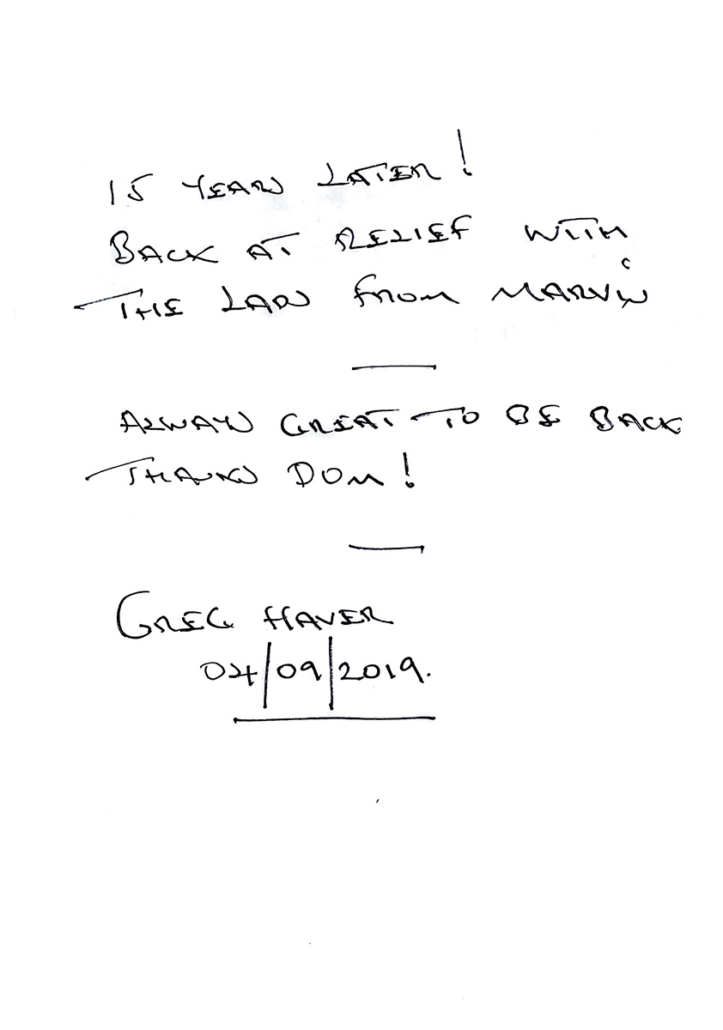 15 YEARS LATER!
BACK AT RELIEF WITH
THE LADS FROM MARVIN
ALWAYS GREAT TO BE BACK
THANKS DOM!
GREG HAVER
04/09/2019.